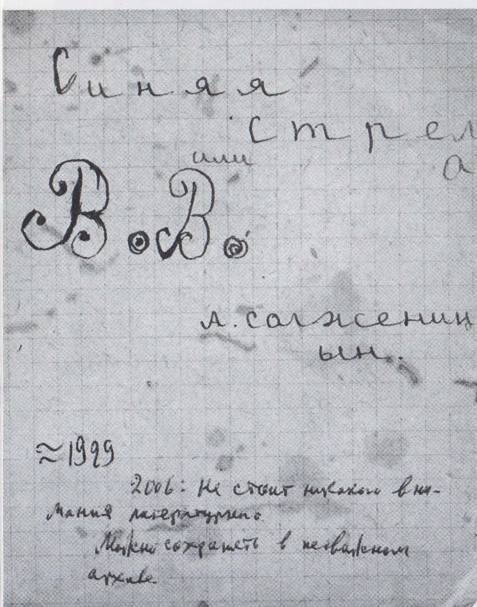 Синяя
Стрел
или а
В.В.
А. солжениц
ын.
≈1929
2006: Не стоит никакого вни-
мания литературного
Можно сохранить в неважном
архиве.